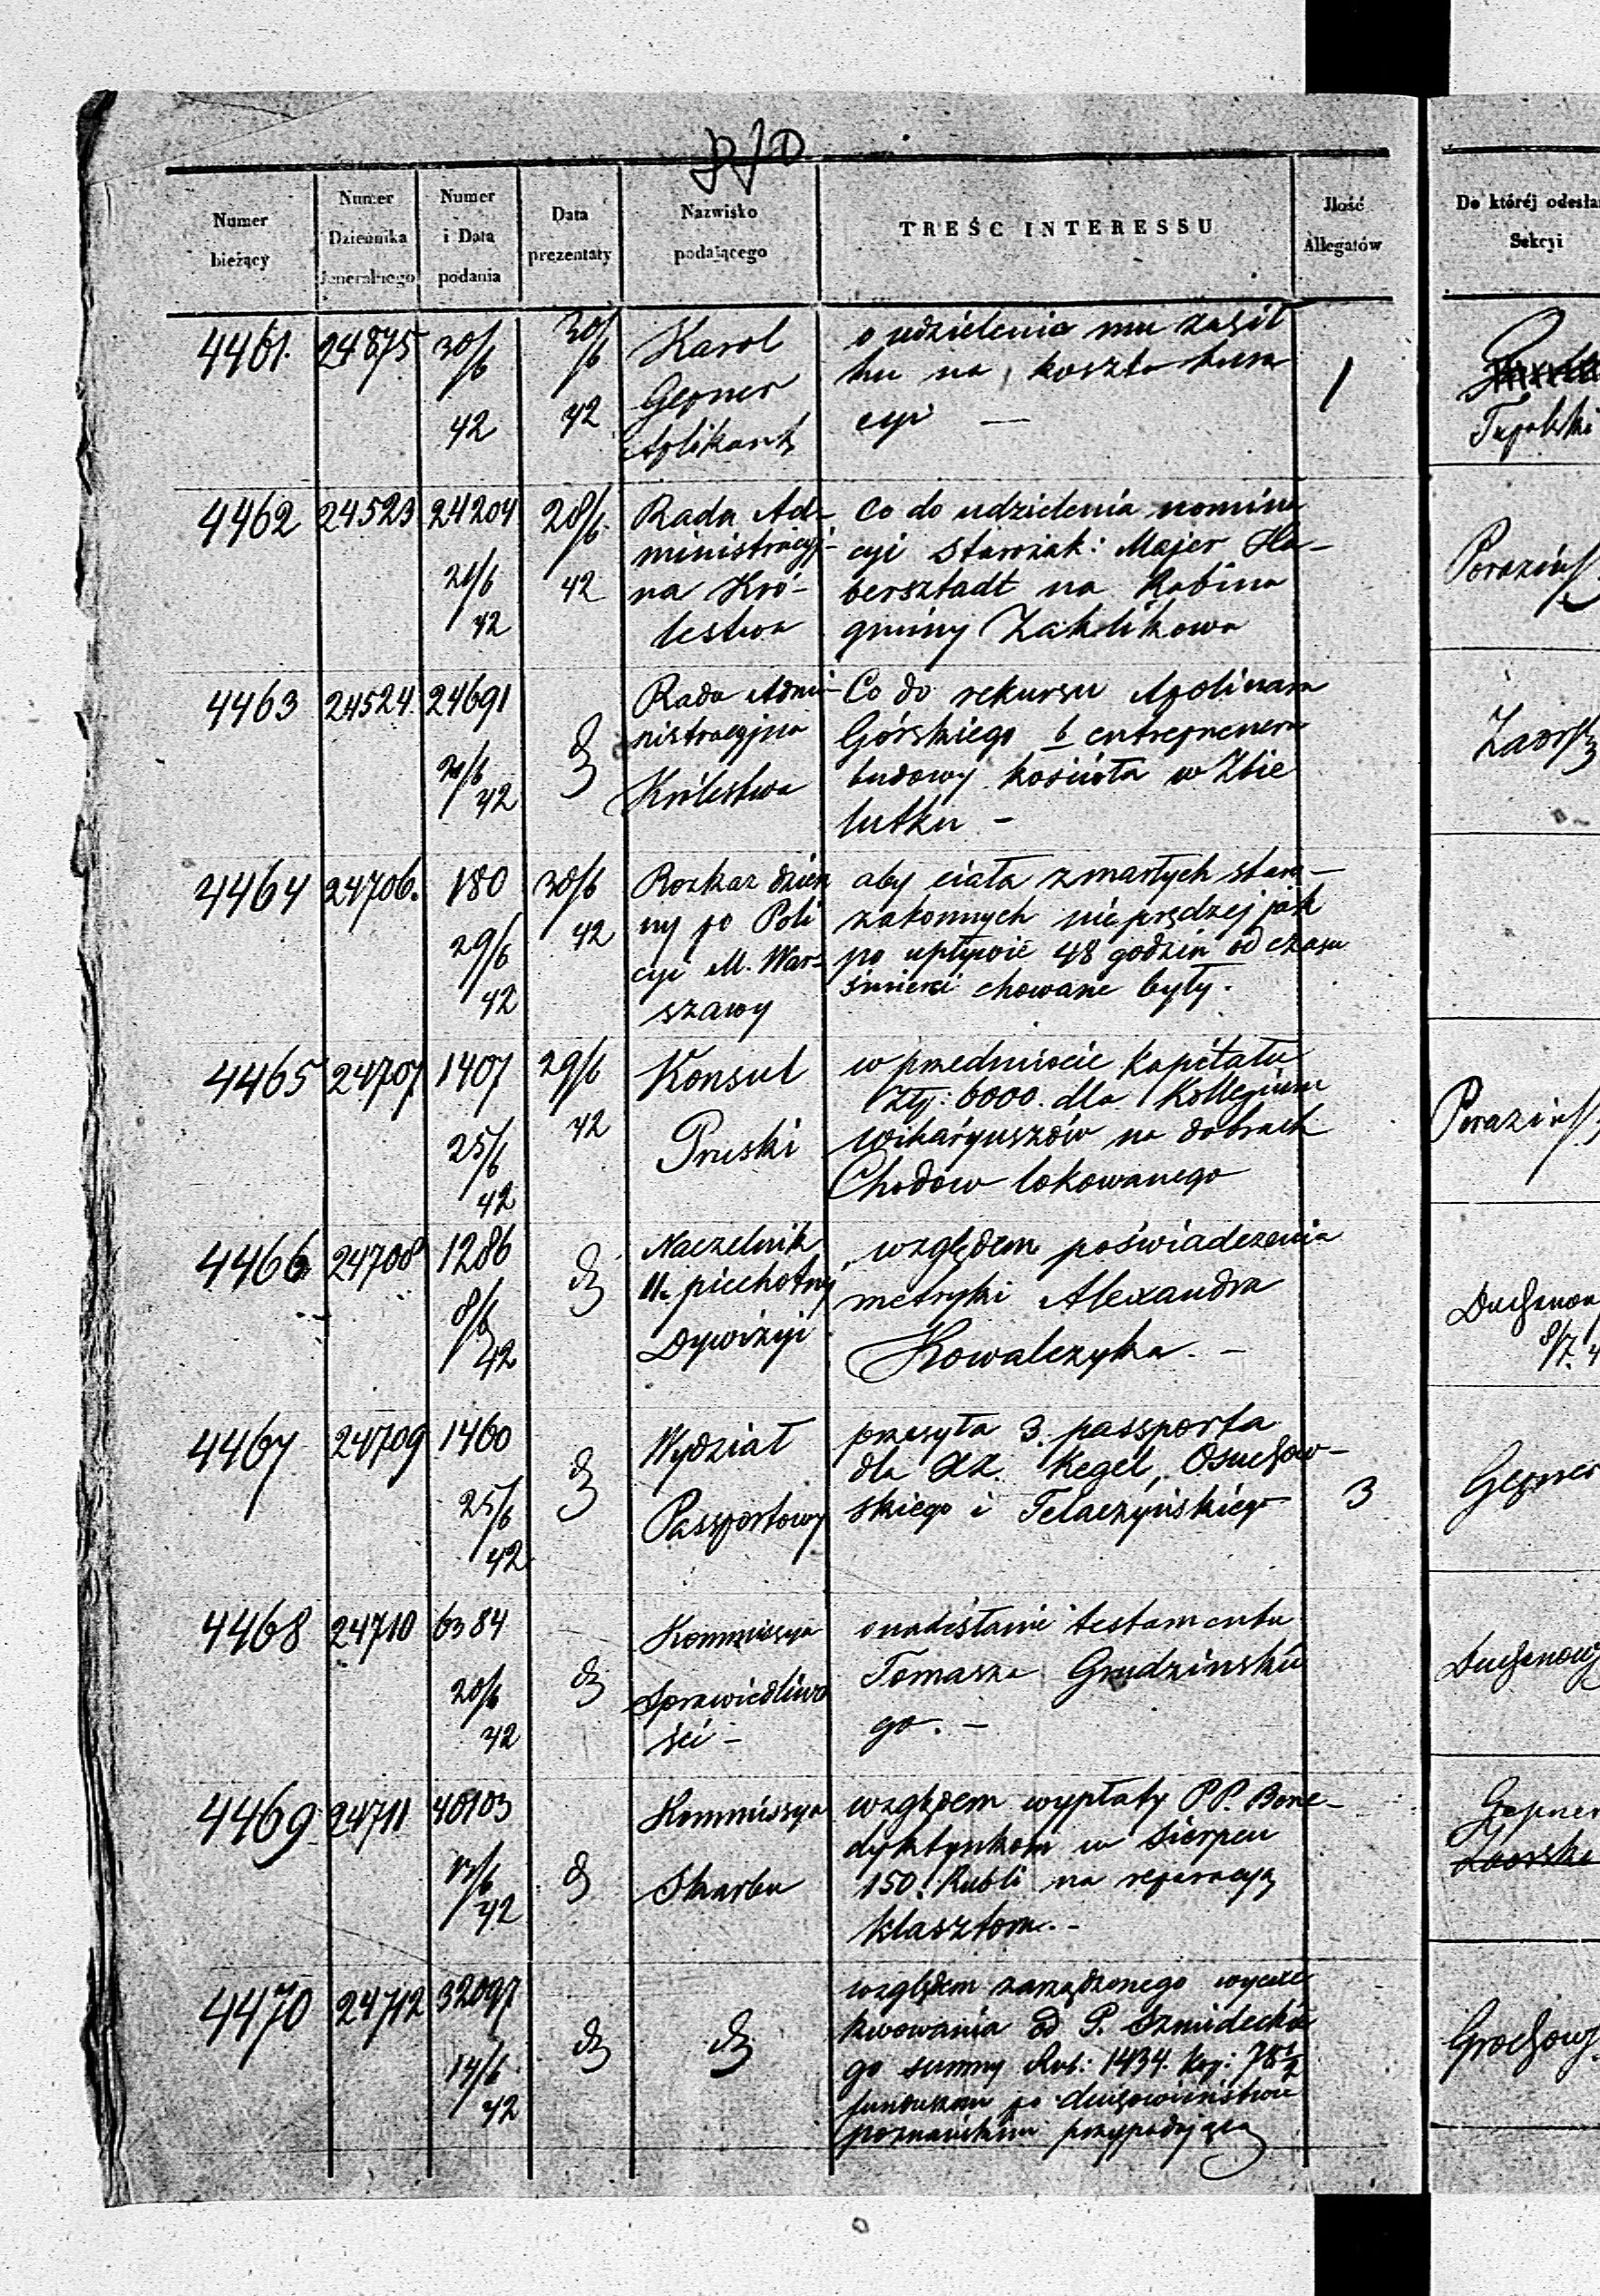 Numer bieżący
Numer Dziennika Jeneralnego
Numer i Data podania
Data prezentaty
Nazwisko podającego
TREŚĆ INTERESSU
Jlość Allegatów
Do któréj odesła
Sekcyi
4461. 24875 30/6 42 30/6 42
Karol
Gepner
Aplikant
o udzielenie mu zasił
ku na koszta kura
cyi —
1
4462 24523 24204 21/6 42 28/6 42
Rada Ad-
ministracyj-
na Kró-
lestwa
Co do udzielenia nomina
cyi Starozak: Majer Ha-
bersztadt na Rabina
gminy Zaklikowa
4463 24524 24691 21/6 42 do
Rada Admi-
nistracyjna
Królestwa
Co do rekursu Apolinara
Górskiego b entreprenera
budowy kościoła w Zbie
lutku -
4464 24706. 180 29/6 42 30/6 42
Rozkaz dzien
ny po Poli
cyi M. War-
szawy
aby ciała zmarłych staro-
zakonnych nie prędzej jak
po upływie 48 godzin od czasu
śmierci chowane były.
4465 24707 1407 25/6 42 29/6 42
Konsul
Pruski
w przedmiocie kapitału
Złp: 6000. dla Kollegium
wikaryuszów na dobrach
Chodow lokowanego
4466 24708 1286 8/6 42 do
Naczelnik
11. piechotnej
Dywizyi
względem poświadczenia
metryki Alexandra
Kowalczyka. -
8/7 4
4467 24709 1460 25/6 42 do
Wydział
Passportowy
przesyła 3. passporta
dla XX. Kegel, Osuchow-
skiego i Telaczyńskiego
3
Gepner
4468 24710 6384 20/6 42 do
Kommissya
Sprawiedliwo
ści -
o nadesłanie testamentu
Tomasza Grudzinskie
go. -
4469 24711 40103 17/6 42 do
Kommissya
Skarbu
względem wypłaty P.P. Bene-
dyktynkom w Sierpcu
150. Rubli na reparacyą
klasztoru. -
Gepner
4470 24712 32097 14/6 42 do
do
względem zarządzonego wyexe
kwowania od P. Szmideckie
go summy Rub: 1434. kop: 78 1/2
funduszom po duchowieństwie
poznańskim przypadającą